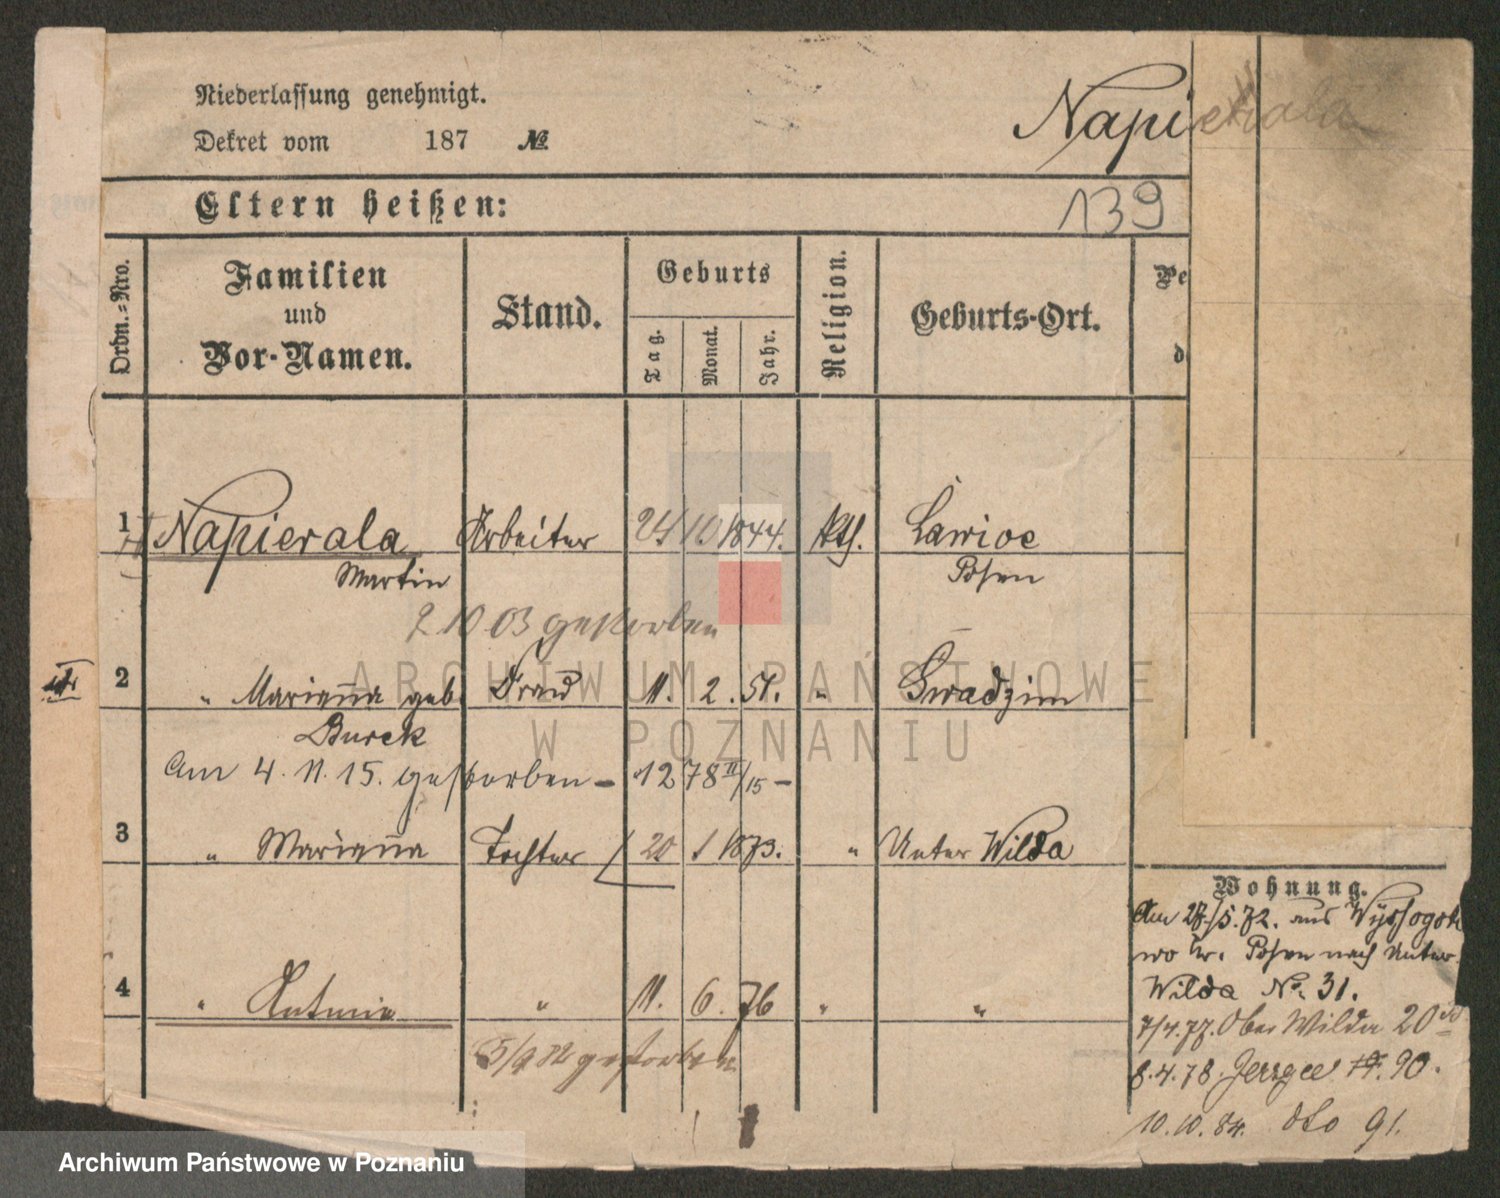 Niederlassung genehmigt.
Dekret vom 187 №
Napierala
Eltern heißen:
139
Ordn.-Nro.
Familien
und
Vor-Namen.
Stand.
Geburts
Tag.
Monat.
Jahr.
Religion.
Geburts-Ort.
Pe
d
1 Napierala Arbeiter 24 10 1844. kth. Lawice
Martin Posen
2.10 03 gestorben
2 " Marianna geb. Frau 11. 2. 51. " Gwadzim
Burek
Am 4. 11. 15. gestorben - 1278 II/15 -
3 " Marianna Tochter 20 1 1873. " Unter Wilda
4 " Antonie " 11. 6. 76 " "
5/9 82 gestorben
Wohnung.
Am 27/5.72. aus Wyssogot
wo Kr. Posen nach Unter
Wilda No. 31.
7/4.77. Ober Wilda 20
8.4.78. Jerzyce 90.
10.10.84. dto 91.
ARCHIWUM PAŃSTWOWE
W POZNANIU
Archiwum Państwowe w Poznaniu